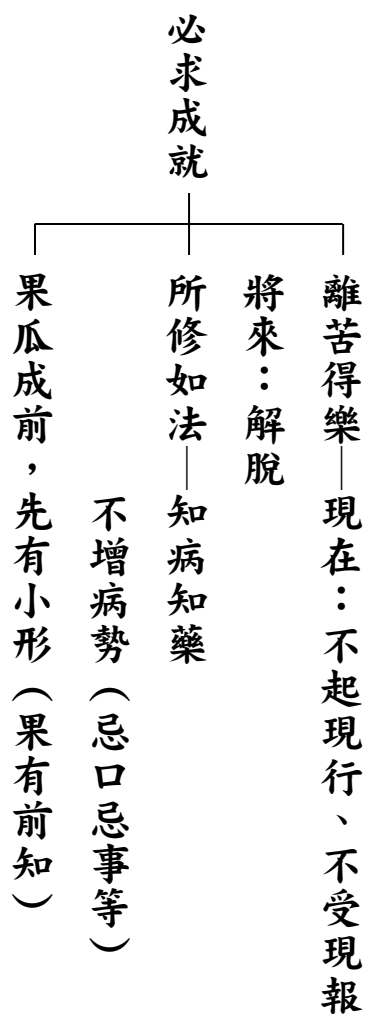 必求成就
離苦得樂—現在：不起現行、不受現報
將來：解脫
所修如法—知病知藥
不增病勢（忌口忌事等）
果瓜成前，先有小形（果有前知）